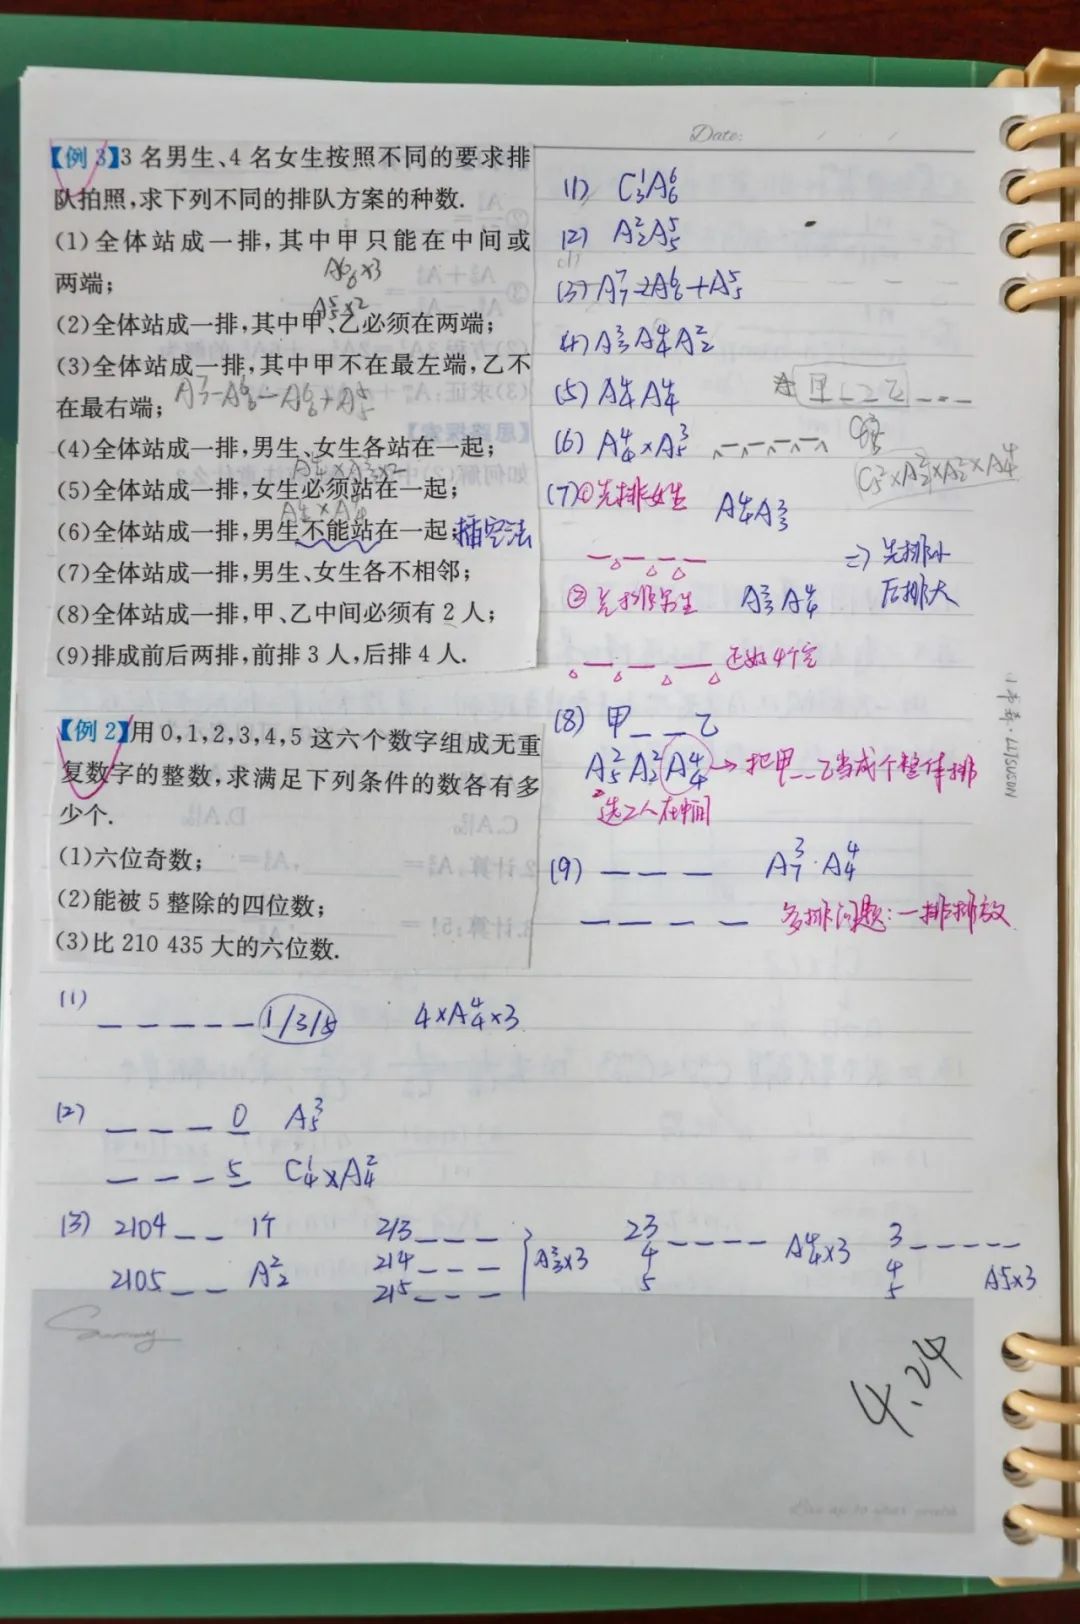 Date: / /
【例 3】3 名男生、4 名女生按照不同的要求排
队拍照,求下列不同的排队方案的种数.
(1)全体站成一排,其中甲只能在中间或
两端;
A⁶₆×3
(2)全体站成一排,其中甲、乙必须在两端;
A⁵₅×2
(3)全体站成一排,其中甲不在最左端,乙不
在最右端;
A⁷₇-A⁶₆-A⁶₆+A⁵₅
(4)全体站成一排,男生、女生各站在一起;
A⁴₄×A³₃×2
(5)全体站成一排,女生必须站在一起;
A⁴₄×A⁴₄
(6)全体站成一排,男生不能站在一起;插空法
(7)全体站成一排,男生、女生各不相邻;
(8)全体站成一排,甲、乙中间必须有 2 人;
(9)排成前后两排,前排 3 人,后排 4 人.
(1) C¹₃A⁶₆
(2) A²₂A⁵₅
(3) A⁷₇-2A⁶₆+A⁵₅
(4) A³₃A⁴₄A²₂
(5) A⁴₄A⁴₄
甲_ _乙 _ _ _
(6) A⁴₄×A³₅
C²₅×A²₂×A²₂×A⁴₄
(7)①先排女生 A⁴₄A³₃
⇒先排小
后排大
②先排男生 A³₃A⁴₄
还好4个空
(8) 甲_ _乙
A²₅A²₂A⁴₄→把甲_ _乙当成个整体排
选2人在中间
(9) _ _ _ A³₇·A⁴₄
_ _ _ _ 多排问题:一排排放
【例 2】用 0,1,2,3,4,5 这六个数字组成无重
复数字的整数,求满足下列条件的数各有多
少个.
(1)六位奇数;
(2)能被 5 整除的四位数;
(3)比 210 435 大的六位数.
(1) _ _ _ _ _ 1/3/5 4×A⁴₄×3
(2) _ _ _ 0 A³₅
_ _ _ 5 C¹₄×A²₄
(3) 2104_ _ 1个
2105_ _ A²₂
213_ _ _
214_ _ _
215_ _ _
A³₃×3
23
4 _ _ _ _ A⁴₄×3
5
3 _ _ _ _ _
4
5
A⁵₅×3
Sunny
4.24